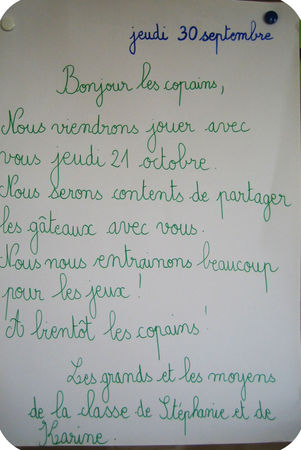 jeudi 30 septembre
Bonjour les copains,
Nous viendrons jouer avec
vous jeudi 21 octobre.
Nous serons contents de partager
les gâteaux avec vous.
Nous nous entrainons beaucoup
pour les jeux !
A bientôt les copains !
Les grands et les moyens
de la classe de Stéphanie et de
Karine.